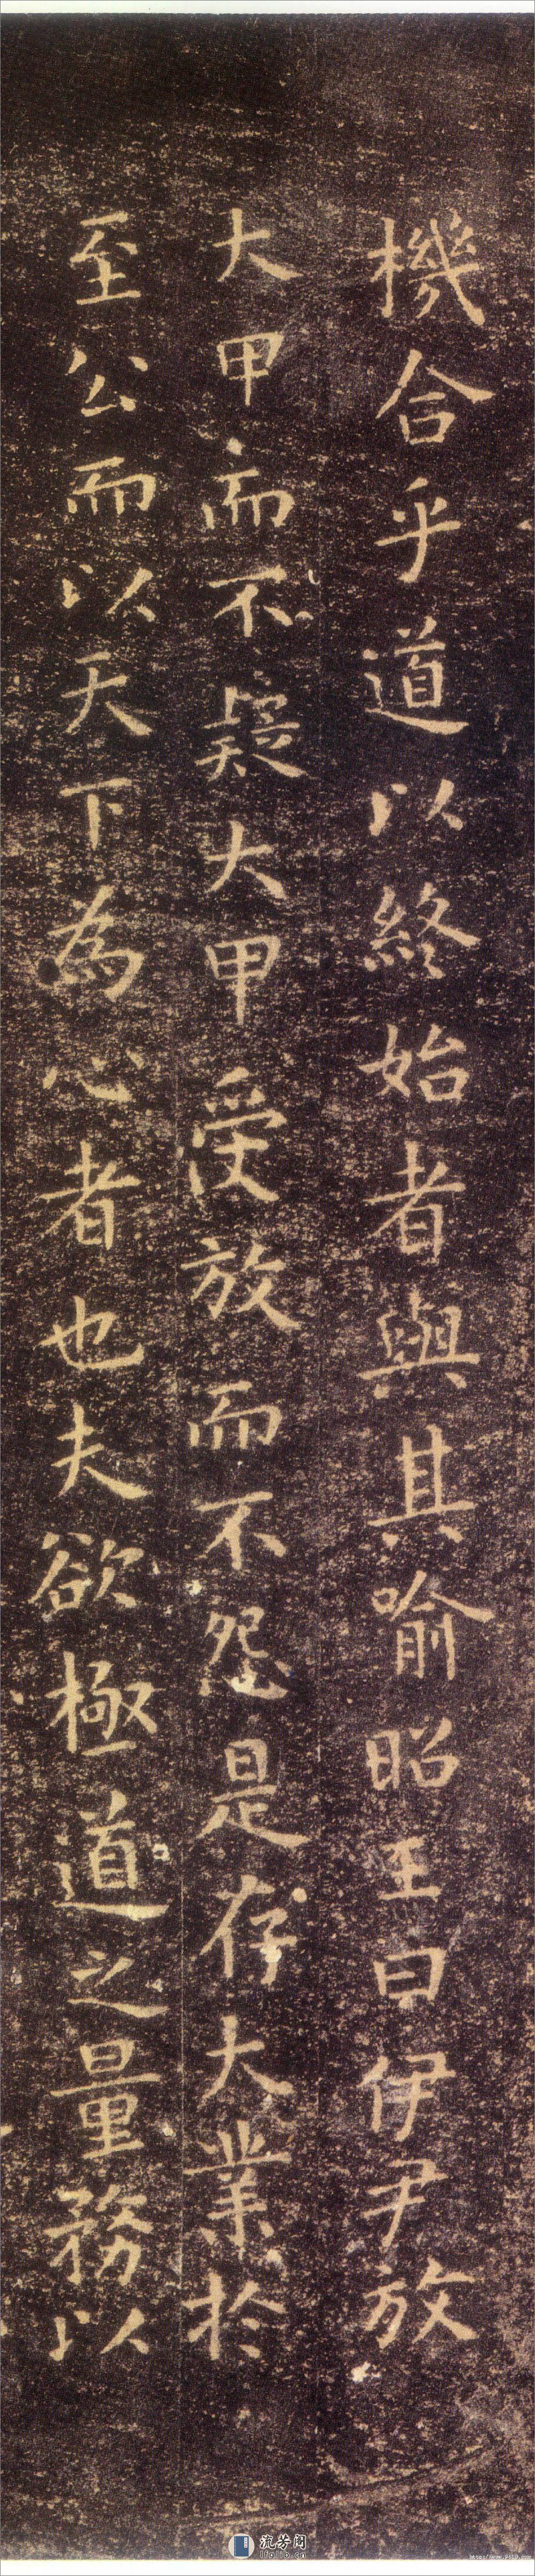 機合乎道以終始者與其喻昭王曰伊尹放
大甲而不疑大甲受放而不怨是存大業於
至公而以天下為心者也夫欲極道之量務以
流芳阁
lfglib.cn